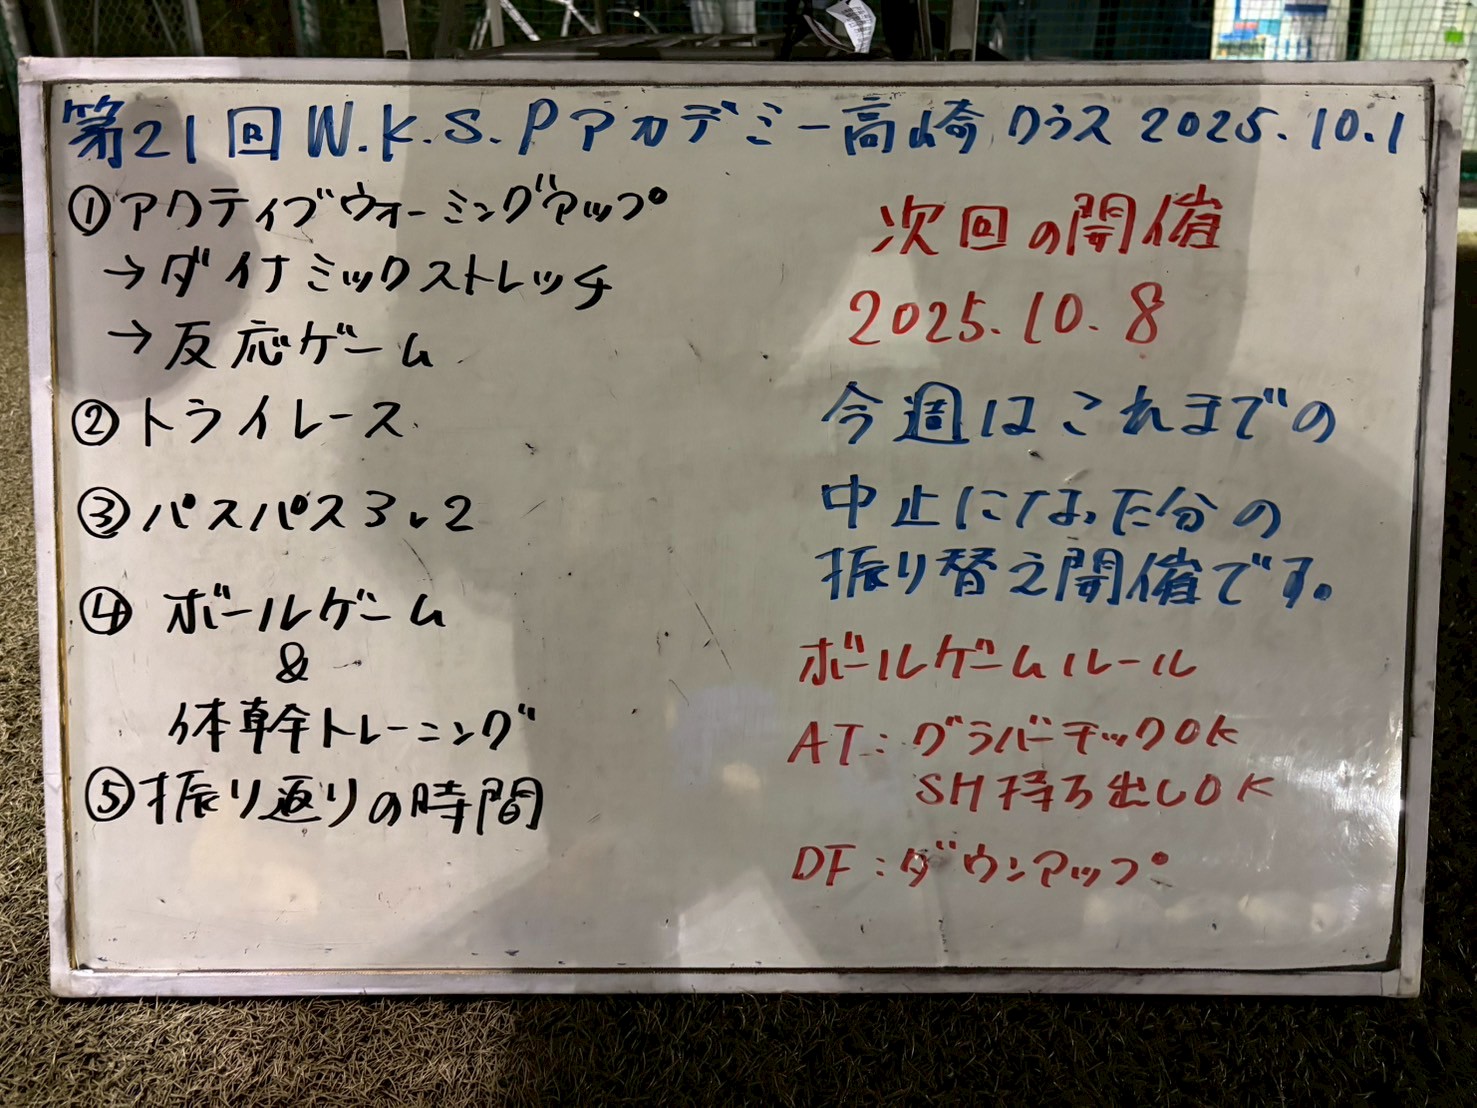 第21回W.K.S.Pアカデミー高崎クラス 2025.10.1
①アクティブウォーミングアップ
→ダイナミックストレッチ
→反応ゲーム
②トライレース
③パスパス3v2
④ボールゲーム
&
体幹トレーニング
⑤振り返りの時間
次回の開催
2025.10.8
今週はこれまでの
中止になった分の
振り替え開催です。
ボールゲームルール
AT:グラバーチックOK
SH持ち出しOK
DF:ダウンアップ